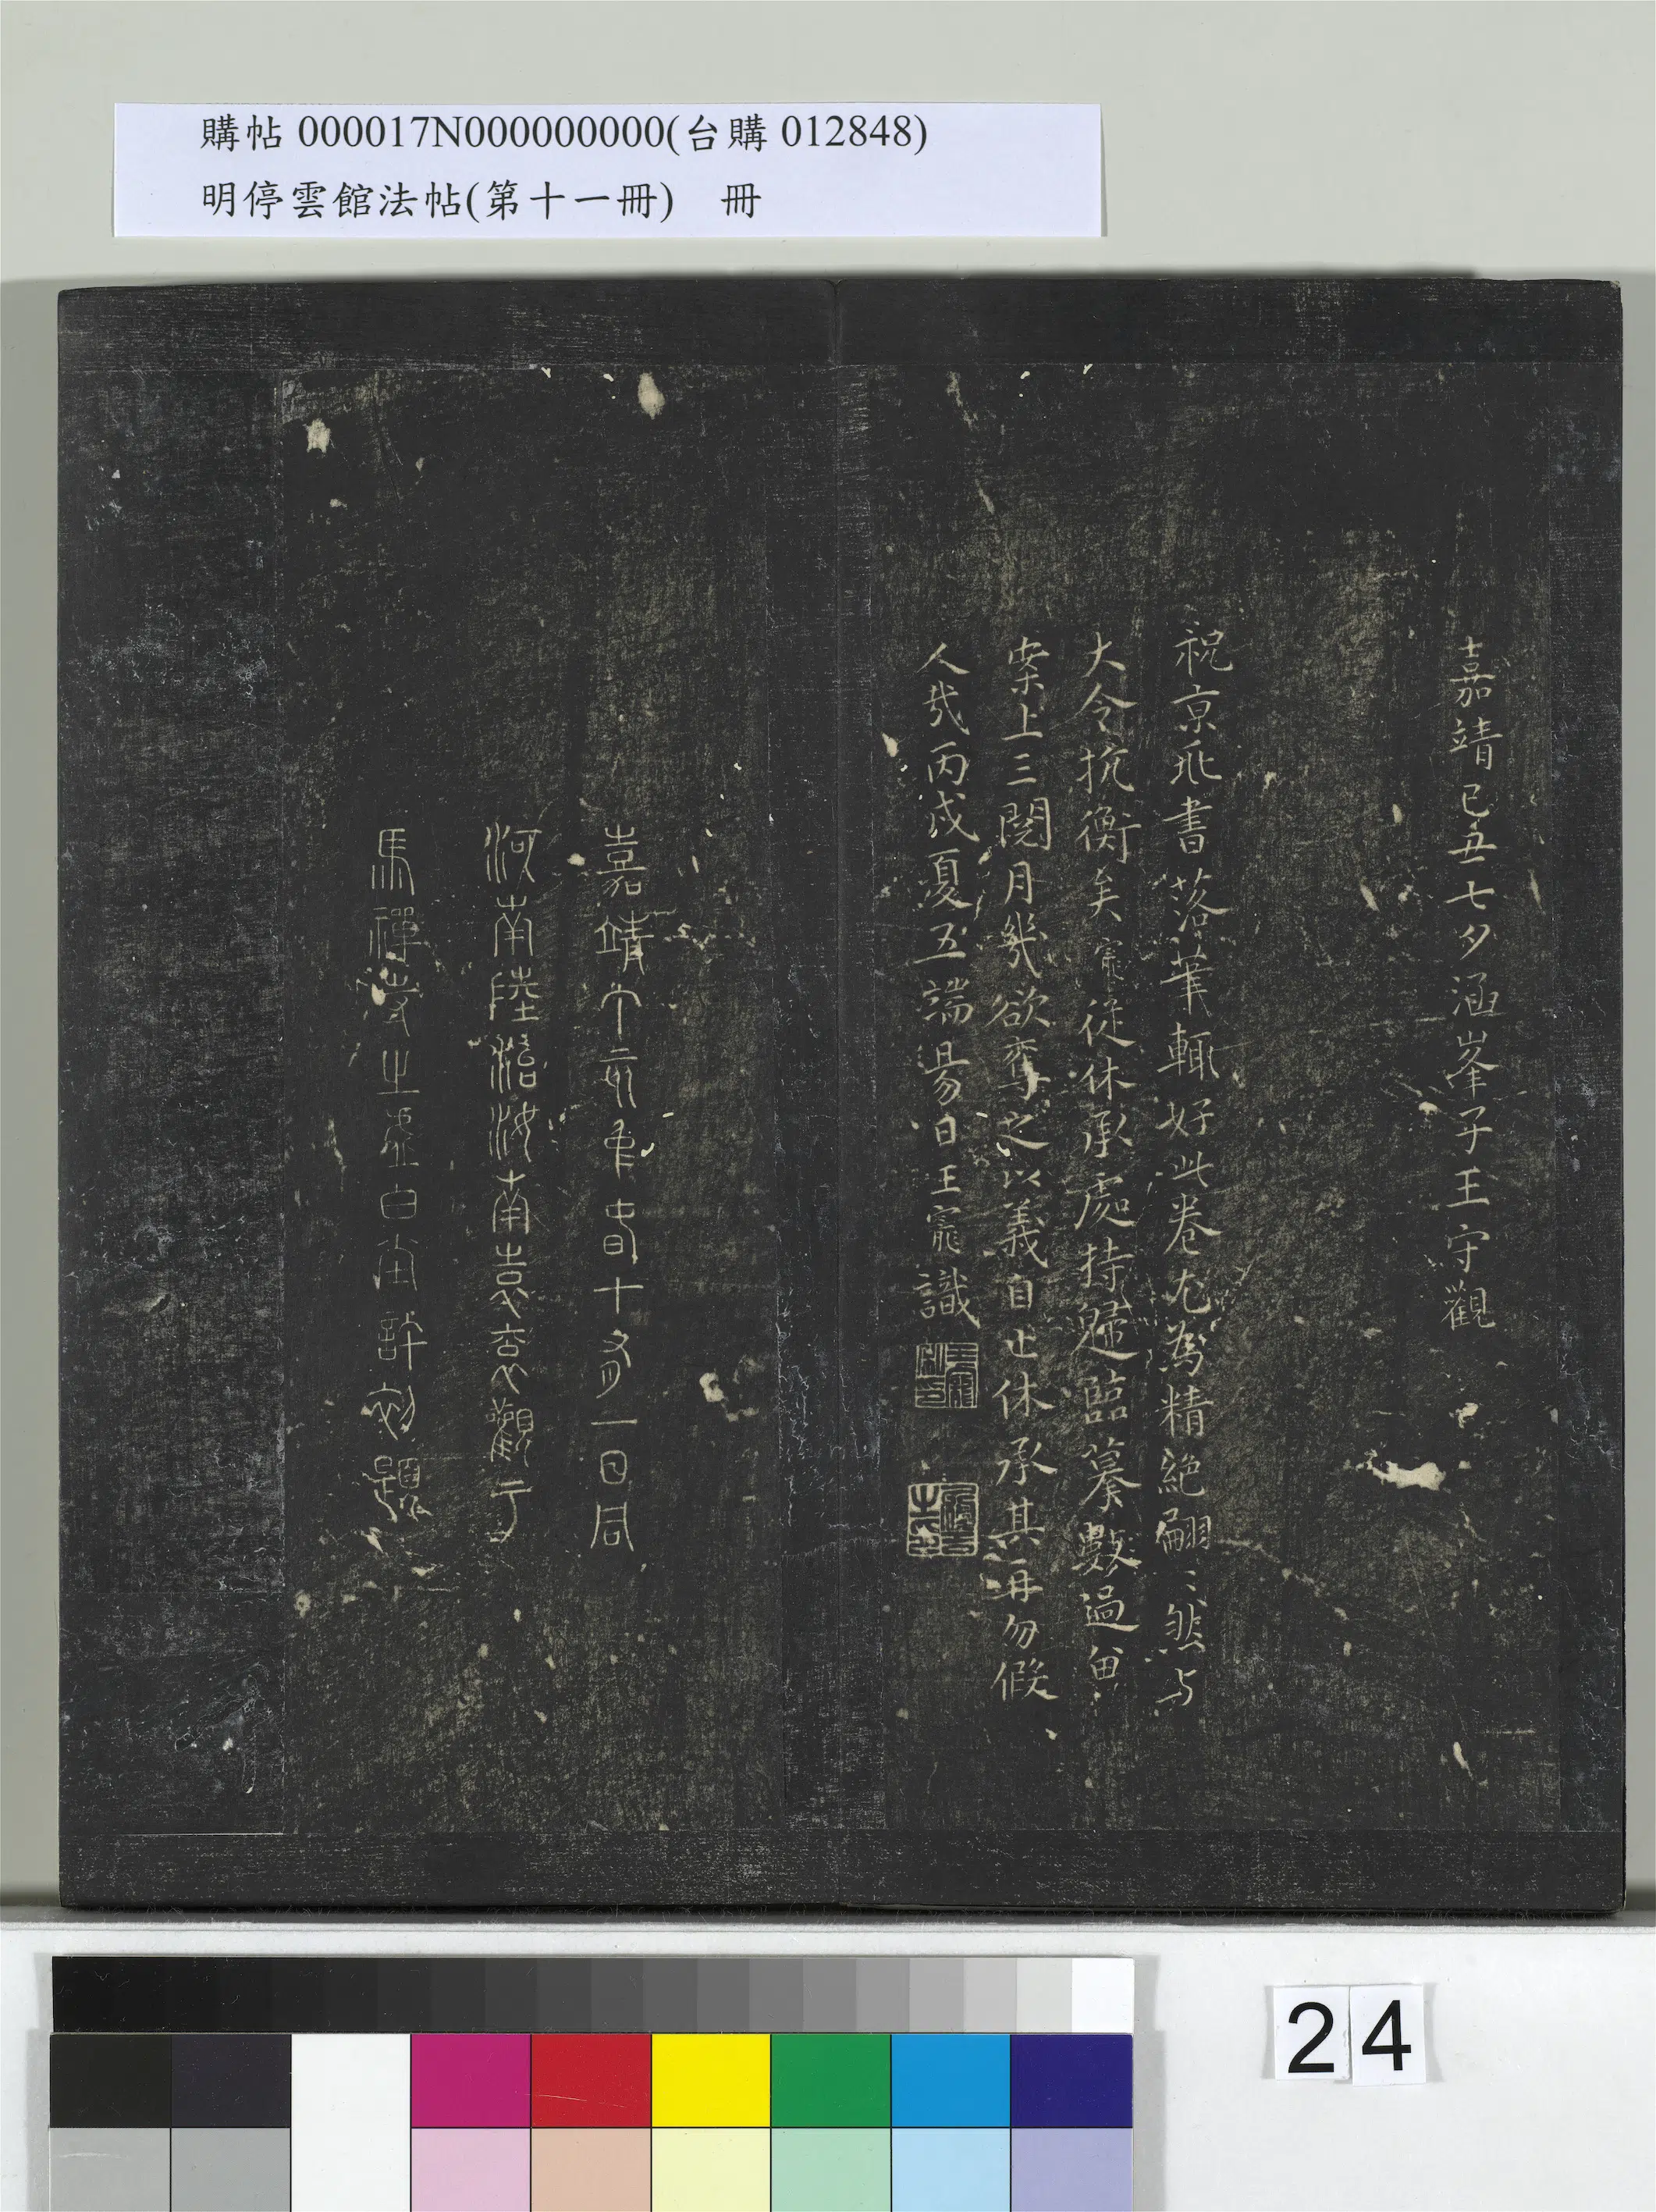 購帖 000017N000000000(台購 012848)
明停雲館法帖(第十一冊) 冊
嘉靖己丑七夕涵峯子王守觀
祝京兆書落筆輒好此卷尤為精絕翩〻然与
大令抗衡矣寵從休承處持歸臨摹數過留
案上三閱月幾欲奪之以義自止休承其再勿假
人哉丙戌夏五端昜日王寵識
嘉靖丁亥年春十有一日同
河南陸汝南袁觀于
馬禪虛白室許初題
24